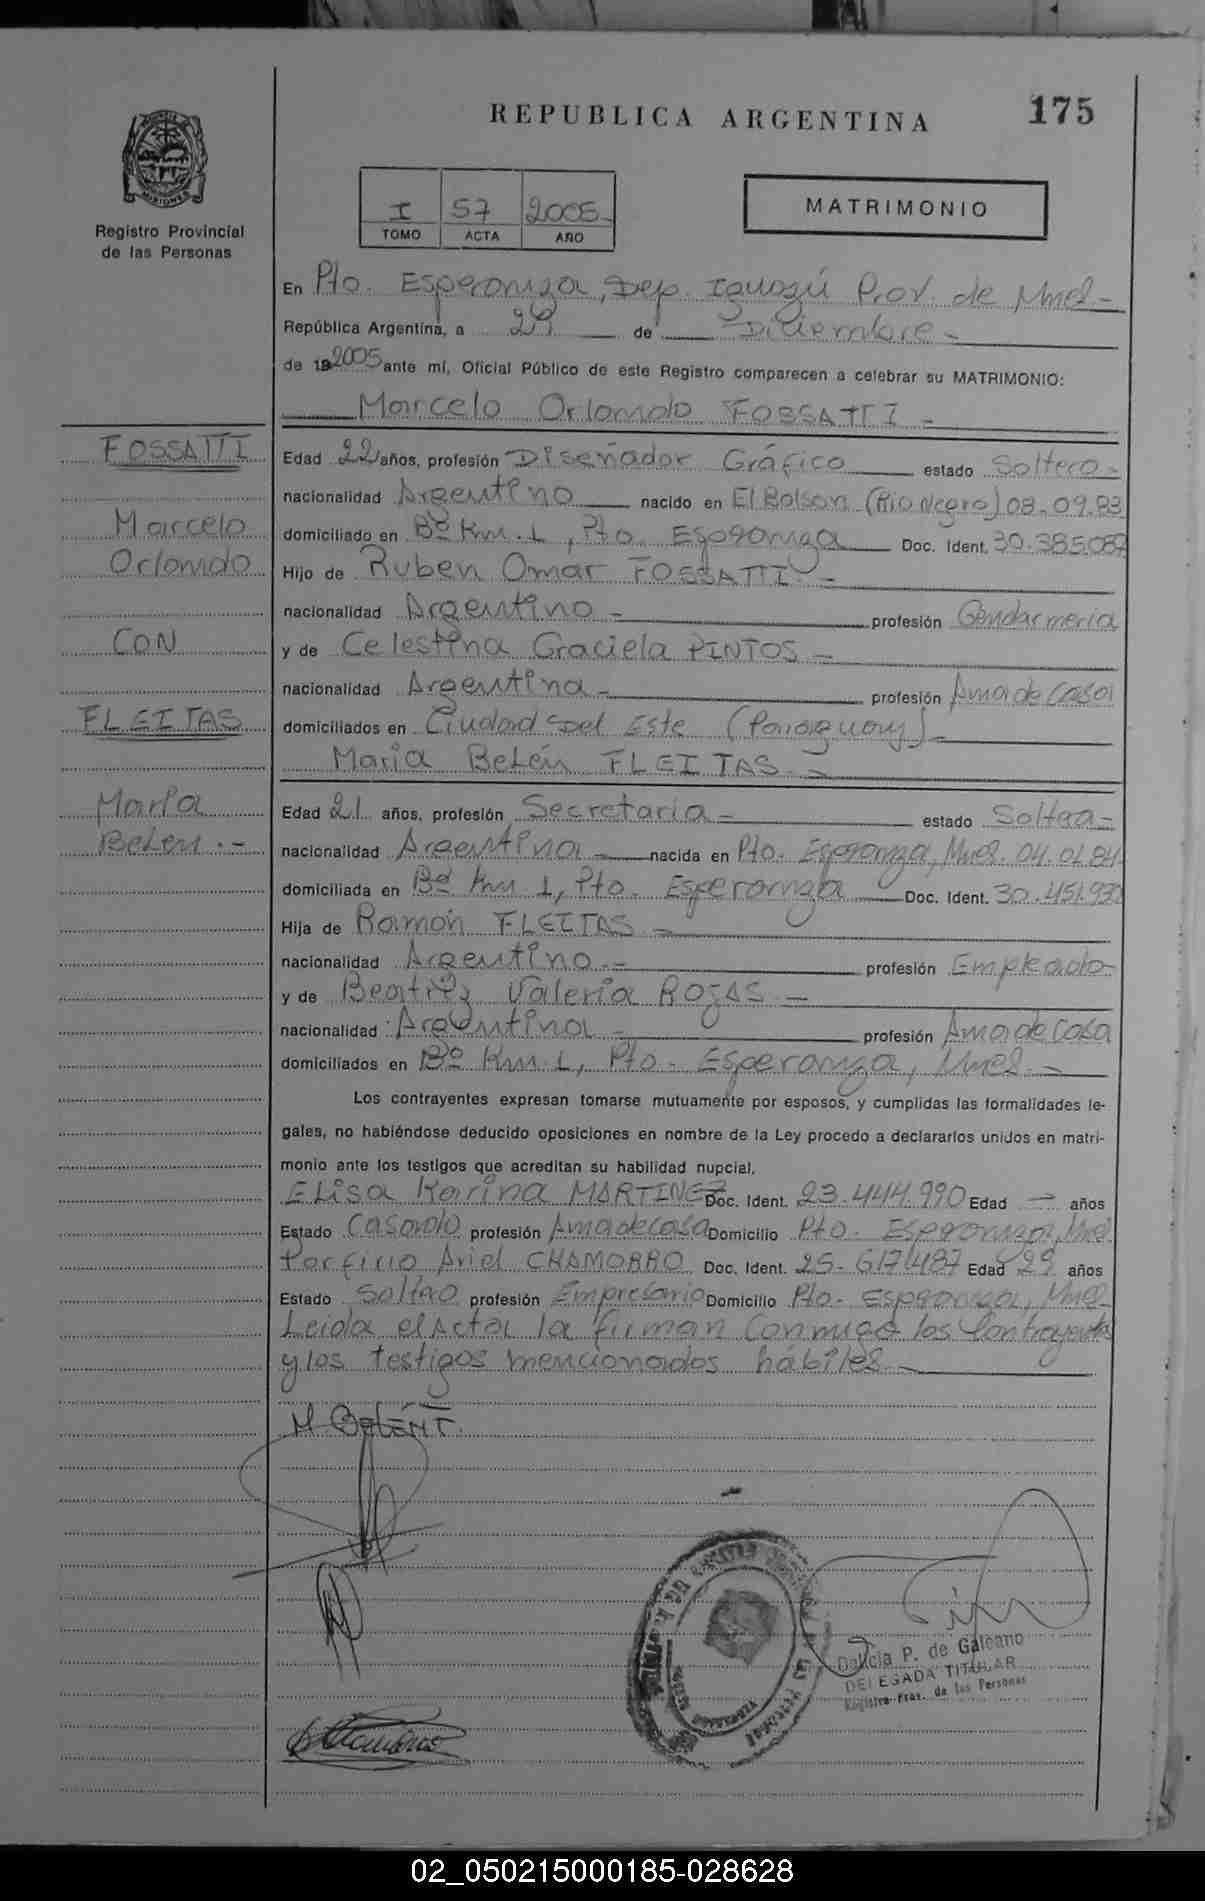 REPUBLICA ARGENTINA
175
MISIONES
Registro Provincial
de las Personas
I 57 2005
TOMO ACTA AÑO
MATRIMONIO
En Pto. Esperanza, Dep. Iguazú Prov. de Mnes-
República Argentina, a 29 de Diciembre-
de 2005 ante mí, Oficial Público de este Registro comparecen a celebrar su MATRIMONIO:
Marcelo Orlando FOSSATTI-
FOSSATTI
Marcelo
Orlando
CON
FLEITAS
María
Belén.-
Edad 22 años, profesión Diseñador Gráfico estado Soltero-
nacionalidad Argentino nacido en El Bolson (Rio Negro) 08.09.83
domiciliado en Bº Km. 1, Pto. Esperanza Doc. Ident. 30.385.087
Hijo de Ruben Omar FOSSATTI.-
nacionalidad Argentino- profesión Gendarmeria
y de Celestina Graciela PINTOS-
nacionalidad Argentina- profesión Ama de Casa
domiciliados en Ciudad del Este (Paraguay)-
Maria Belén FLEITAS.-
Edad 21 años, profesión Secretaria- estado Soltera-
nacionalidad Argentina- nacida en Pto. Esperanza, Mnes. 04.01.84
domiciliada en Bº Km 1, Pto. Esperanza Doc. Ident. 30.451.930
Hija de Ramón FLEITAS-
nacionalidad Argentino.- profesión Empleado-
y de Beatriz Valeria ROJAS-
nacionalidad Argentina- profesión Ama de Casa
domiciliados en Bº Km. 1, Pto. Esperanza, Mnes.-
Los contrayentes expresan tomarse mutuamente por esposos, y cumplidas las formalidades le-
gales, no habiéndose deducido oposiciones en nombre de la Ley procedo a declararlos unidos en matri-
monio ante los testigos que acreditan su habilidad nupcial.
Elisa Karina MARTINEZ Doc. Ident. 23.444.990 Edad - años
Estado Casado profesión Ama de casa Domicilio Pto. Esperanza, Mnes.
Porfirio Ariel CHAMORRO Doc. Ident. 25.617.487 Edad 29 años
Estado Soltero profesión Empresario Domicilio Pto. Esperanza, Mnes-
Leida el Acta, la firman conmigo los Contrayentes
y los testigos mencionados hábiles.-
M. Belén F.
P. de Galeano
DELEGADA TITULAR
Registro Prov. de las Personas
02_050215000185-028628